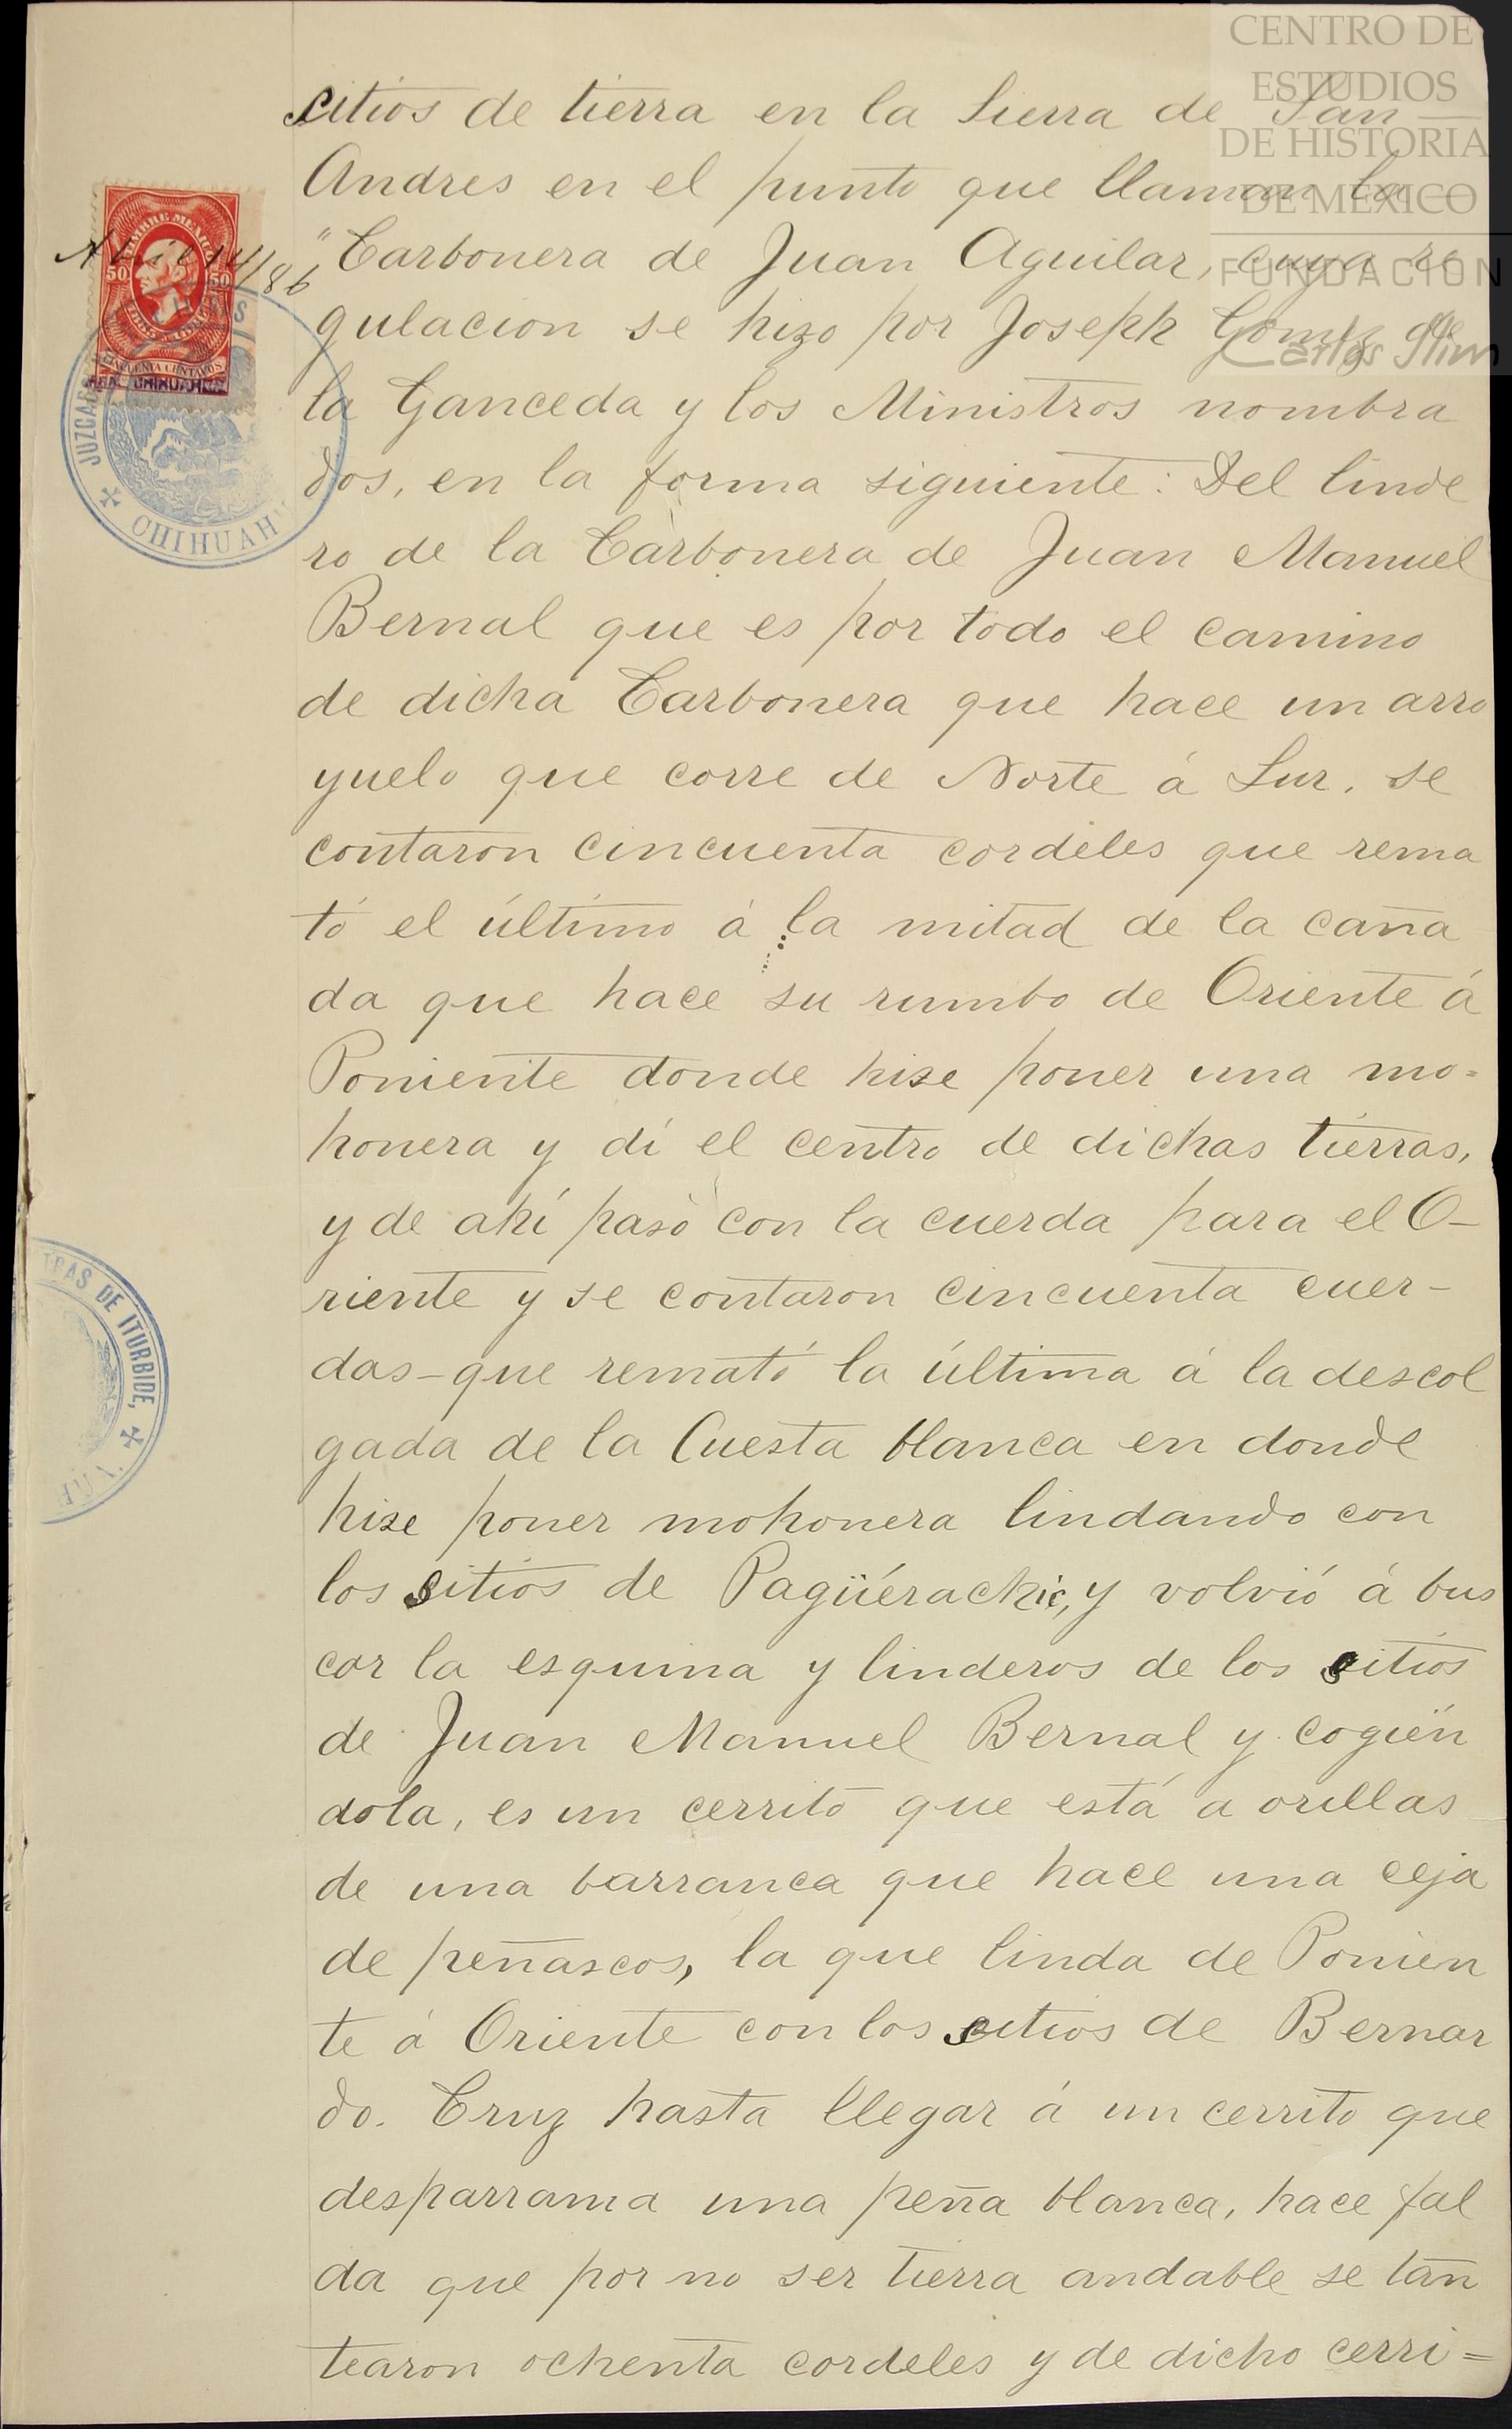 CENTRO DE
ESTUDIOS
DE HISTORIA
DE MÉXICO
FUNDACIÓN
Carlos Slim
sitios de tierra en la Sierra de San
Andres en el punto que llaman la
"Carbonera de Juan Aguilar, cuya re
gulacion se hizo por Joseph Gomez de
la Ganceda y los Ministros nombra
dos, en la forma siguiente: Del linde
ro de la Carbonera de Juan Manuel
Bernal que es por todo el camino
de dicha Carbonera que hace un arro
yuelo que corre de Norte á Sur, se
contaron cincuenta cordeles que rema
tó el último á la mitad de la caña
da que hace su rumbo de Oriente á
Poniente donde hise poner una mo=
honera y dí el centro de dichas tierras,
y de ahí pasó con la cuerda para el O-
riente y se contaron cincuenta cuer-
das-que remató la última á la descol
gada de la Cuesta blanca en donde
hise poner mohonera lindando con
los sitios de Pagüérachic, y volvió á bus
car la esquina y linderos de los sitios
de Juan Manuel Bernal y cogién
dola, es un cerrito que está a orillas
de una barranca que hace una ceja
de peñascos, la que linda de Ponien
te á Oriente con los sitios de Bernar
do. Cruz hasta llegar á un cerrito que
desparrama una peña blanca, hace fal
da que por no ser tierra andable se tan
tearon ochenta cordeles y de dicho cerri=
Abril 14/86
TIMBRE MEXICO
50 50
CINCUENTA CENTAVOS
CHIHUAHUA
JUZGADO
CHIHUAH
TRAS DE ITURBIDE,